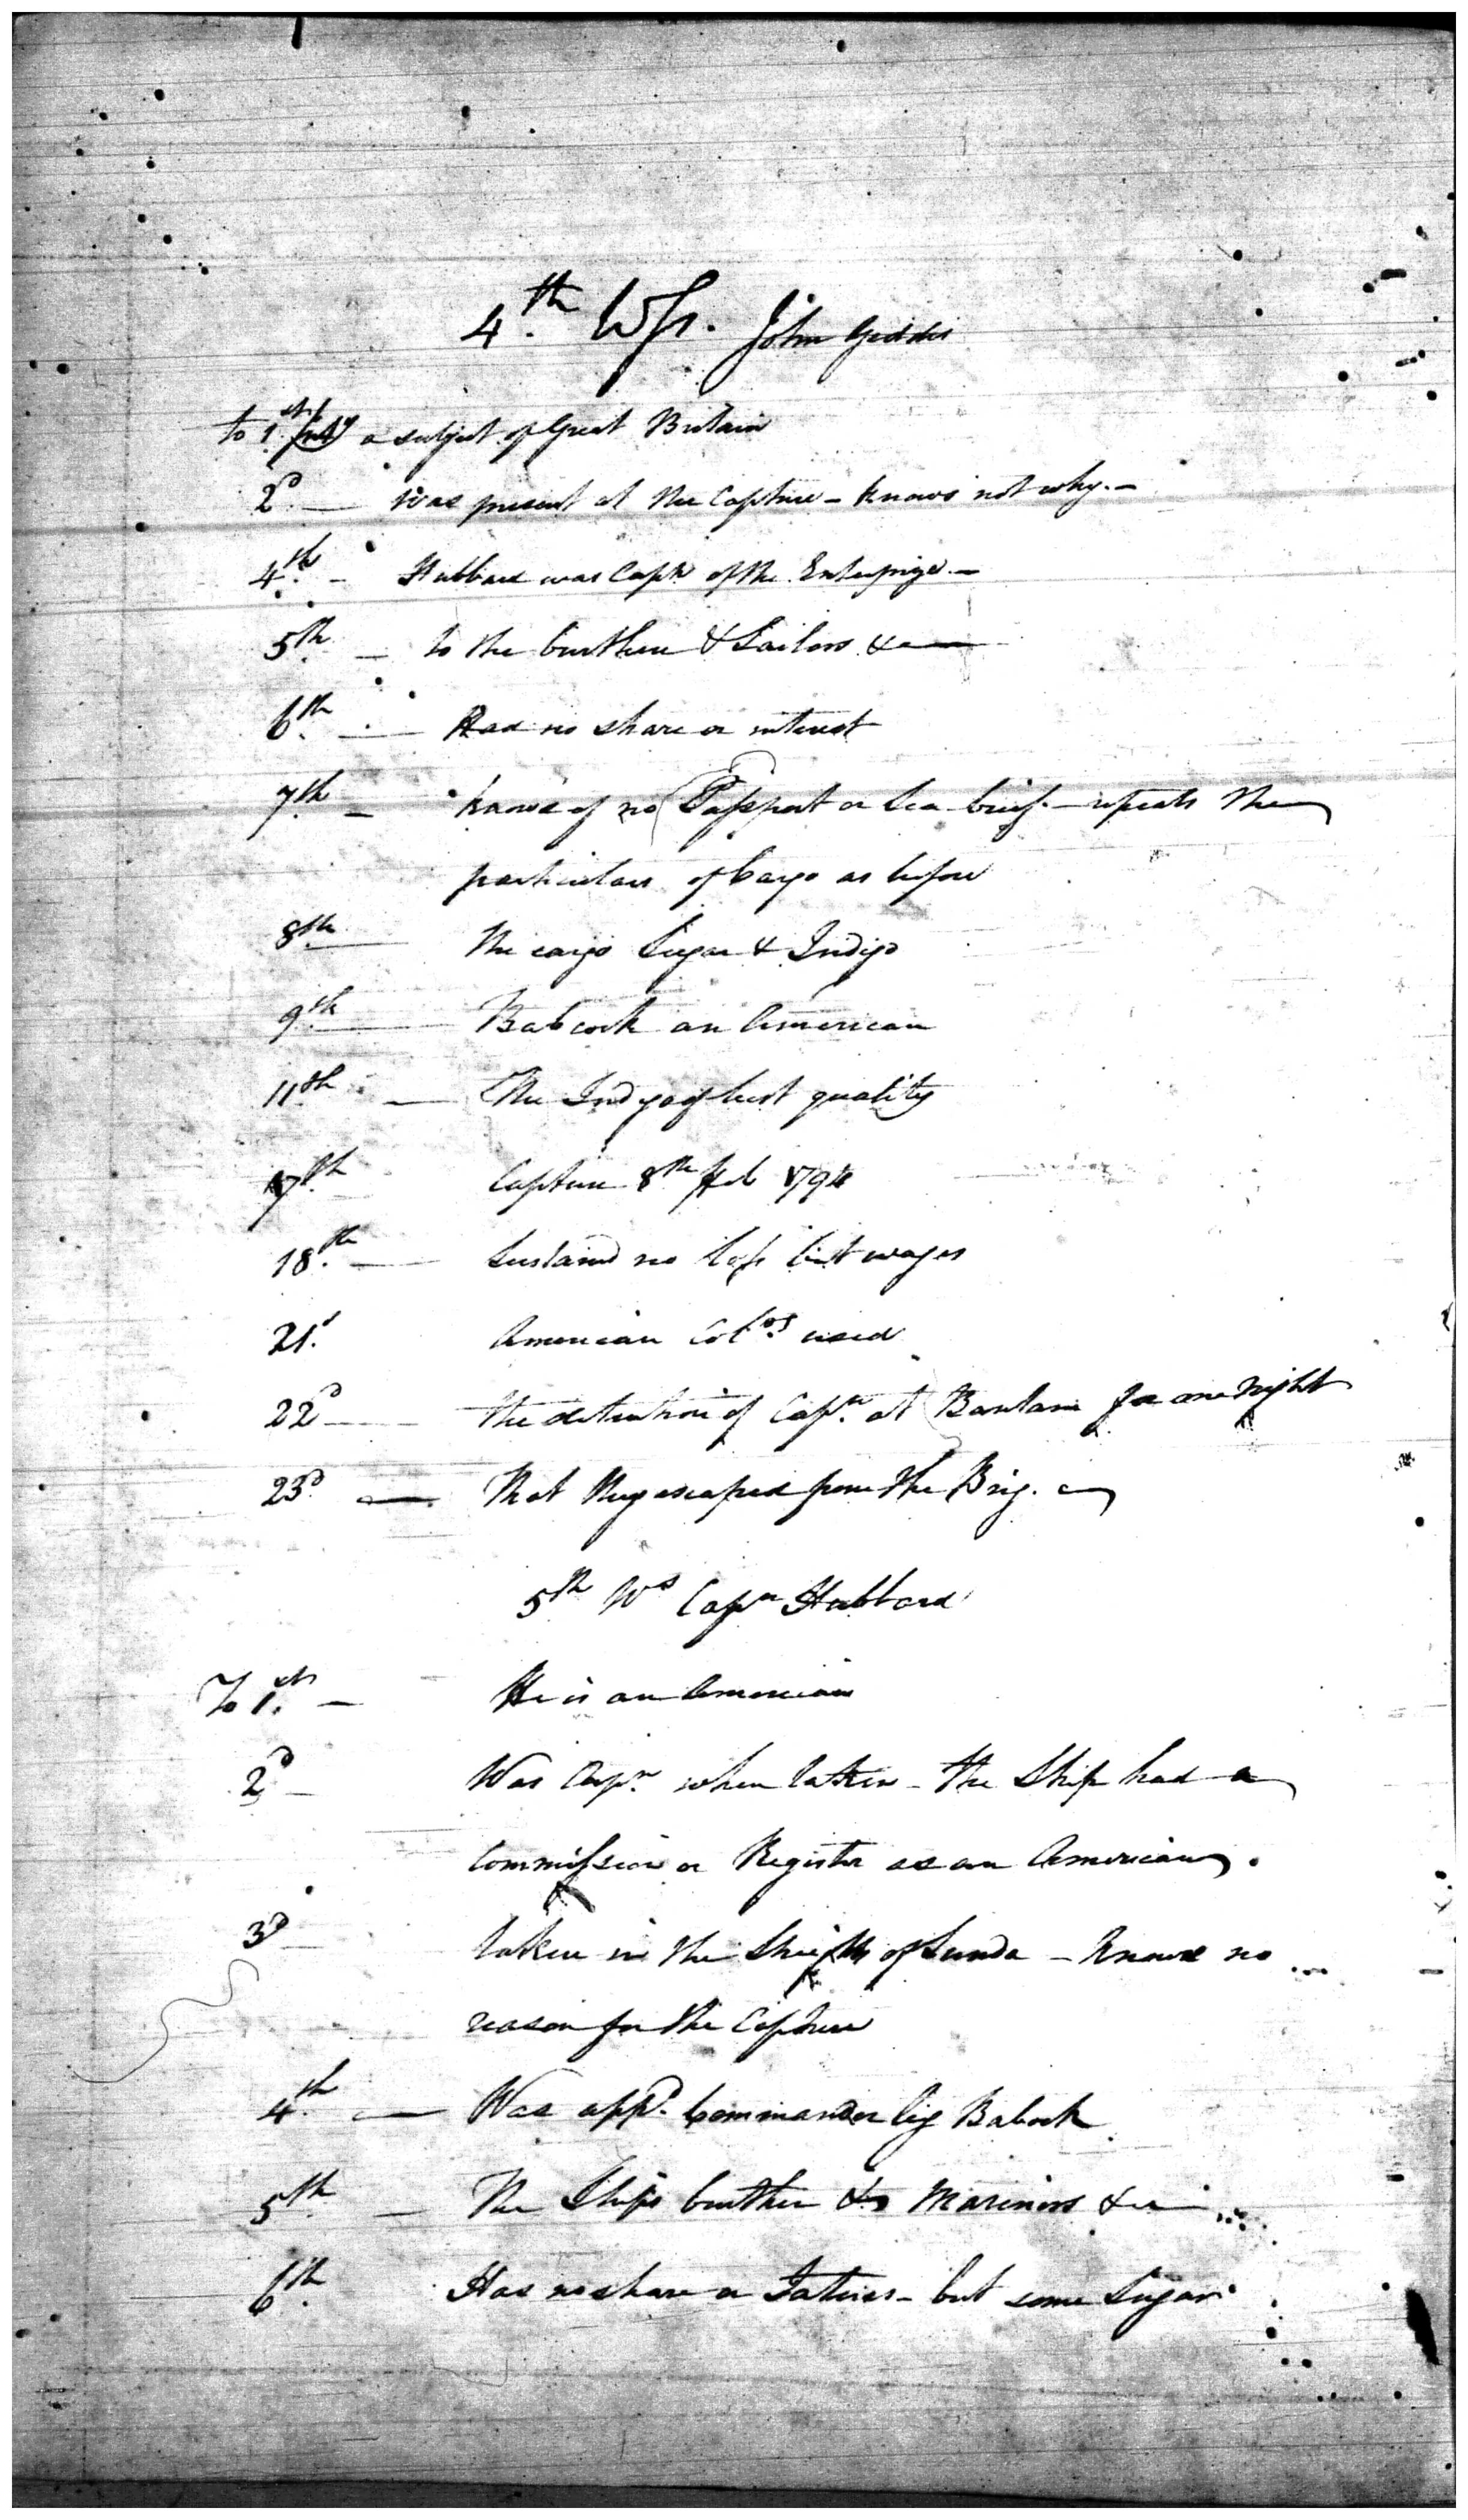 4.th Ws. John Geddis
to 1.st Inty a subject of Great Britain
2.d — was present at the Capture - knows not why. -
4.th - Hubbard was Capn of the Enterprize. -
5.th — to the burthen & Sailors &c
6.th — Had no share or interest
7.th - knows of no Passport or Sea brief. - repeats the
particulars of Cargo as before
8th — the cargo Sugar & Indigo
9.th — Babcock an American
11.th — The Indigo of best quality
17.th Capture 8th Feb 1794
18.th — Sustaind no loss but wages
21.st American Colo.rs used
22d — the detention of Cap.n at Bantam for one night
23d. — That they escaped from the Brig.
5th Ws Capn Hubbard
To 1.st — He is an American
2.d — Was Cap.n when taken - the Ship had a
Commission or Register as an American.
3d — taken in the Streights of Sunda - knows no
reason for the Capture
4.th — Was app.d Commander by Babcock
5.th — The Ships burthen & Mariners &c
6.th Has no share or - but some Sugar